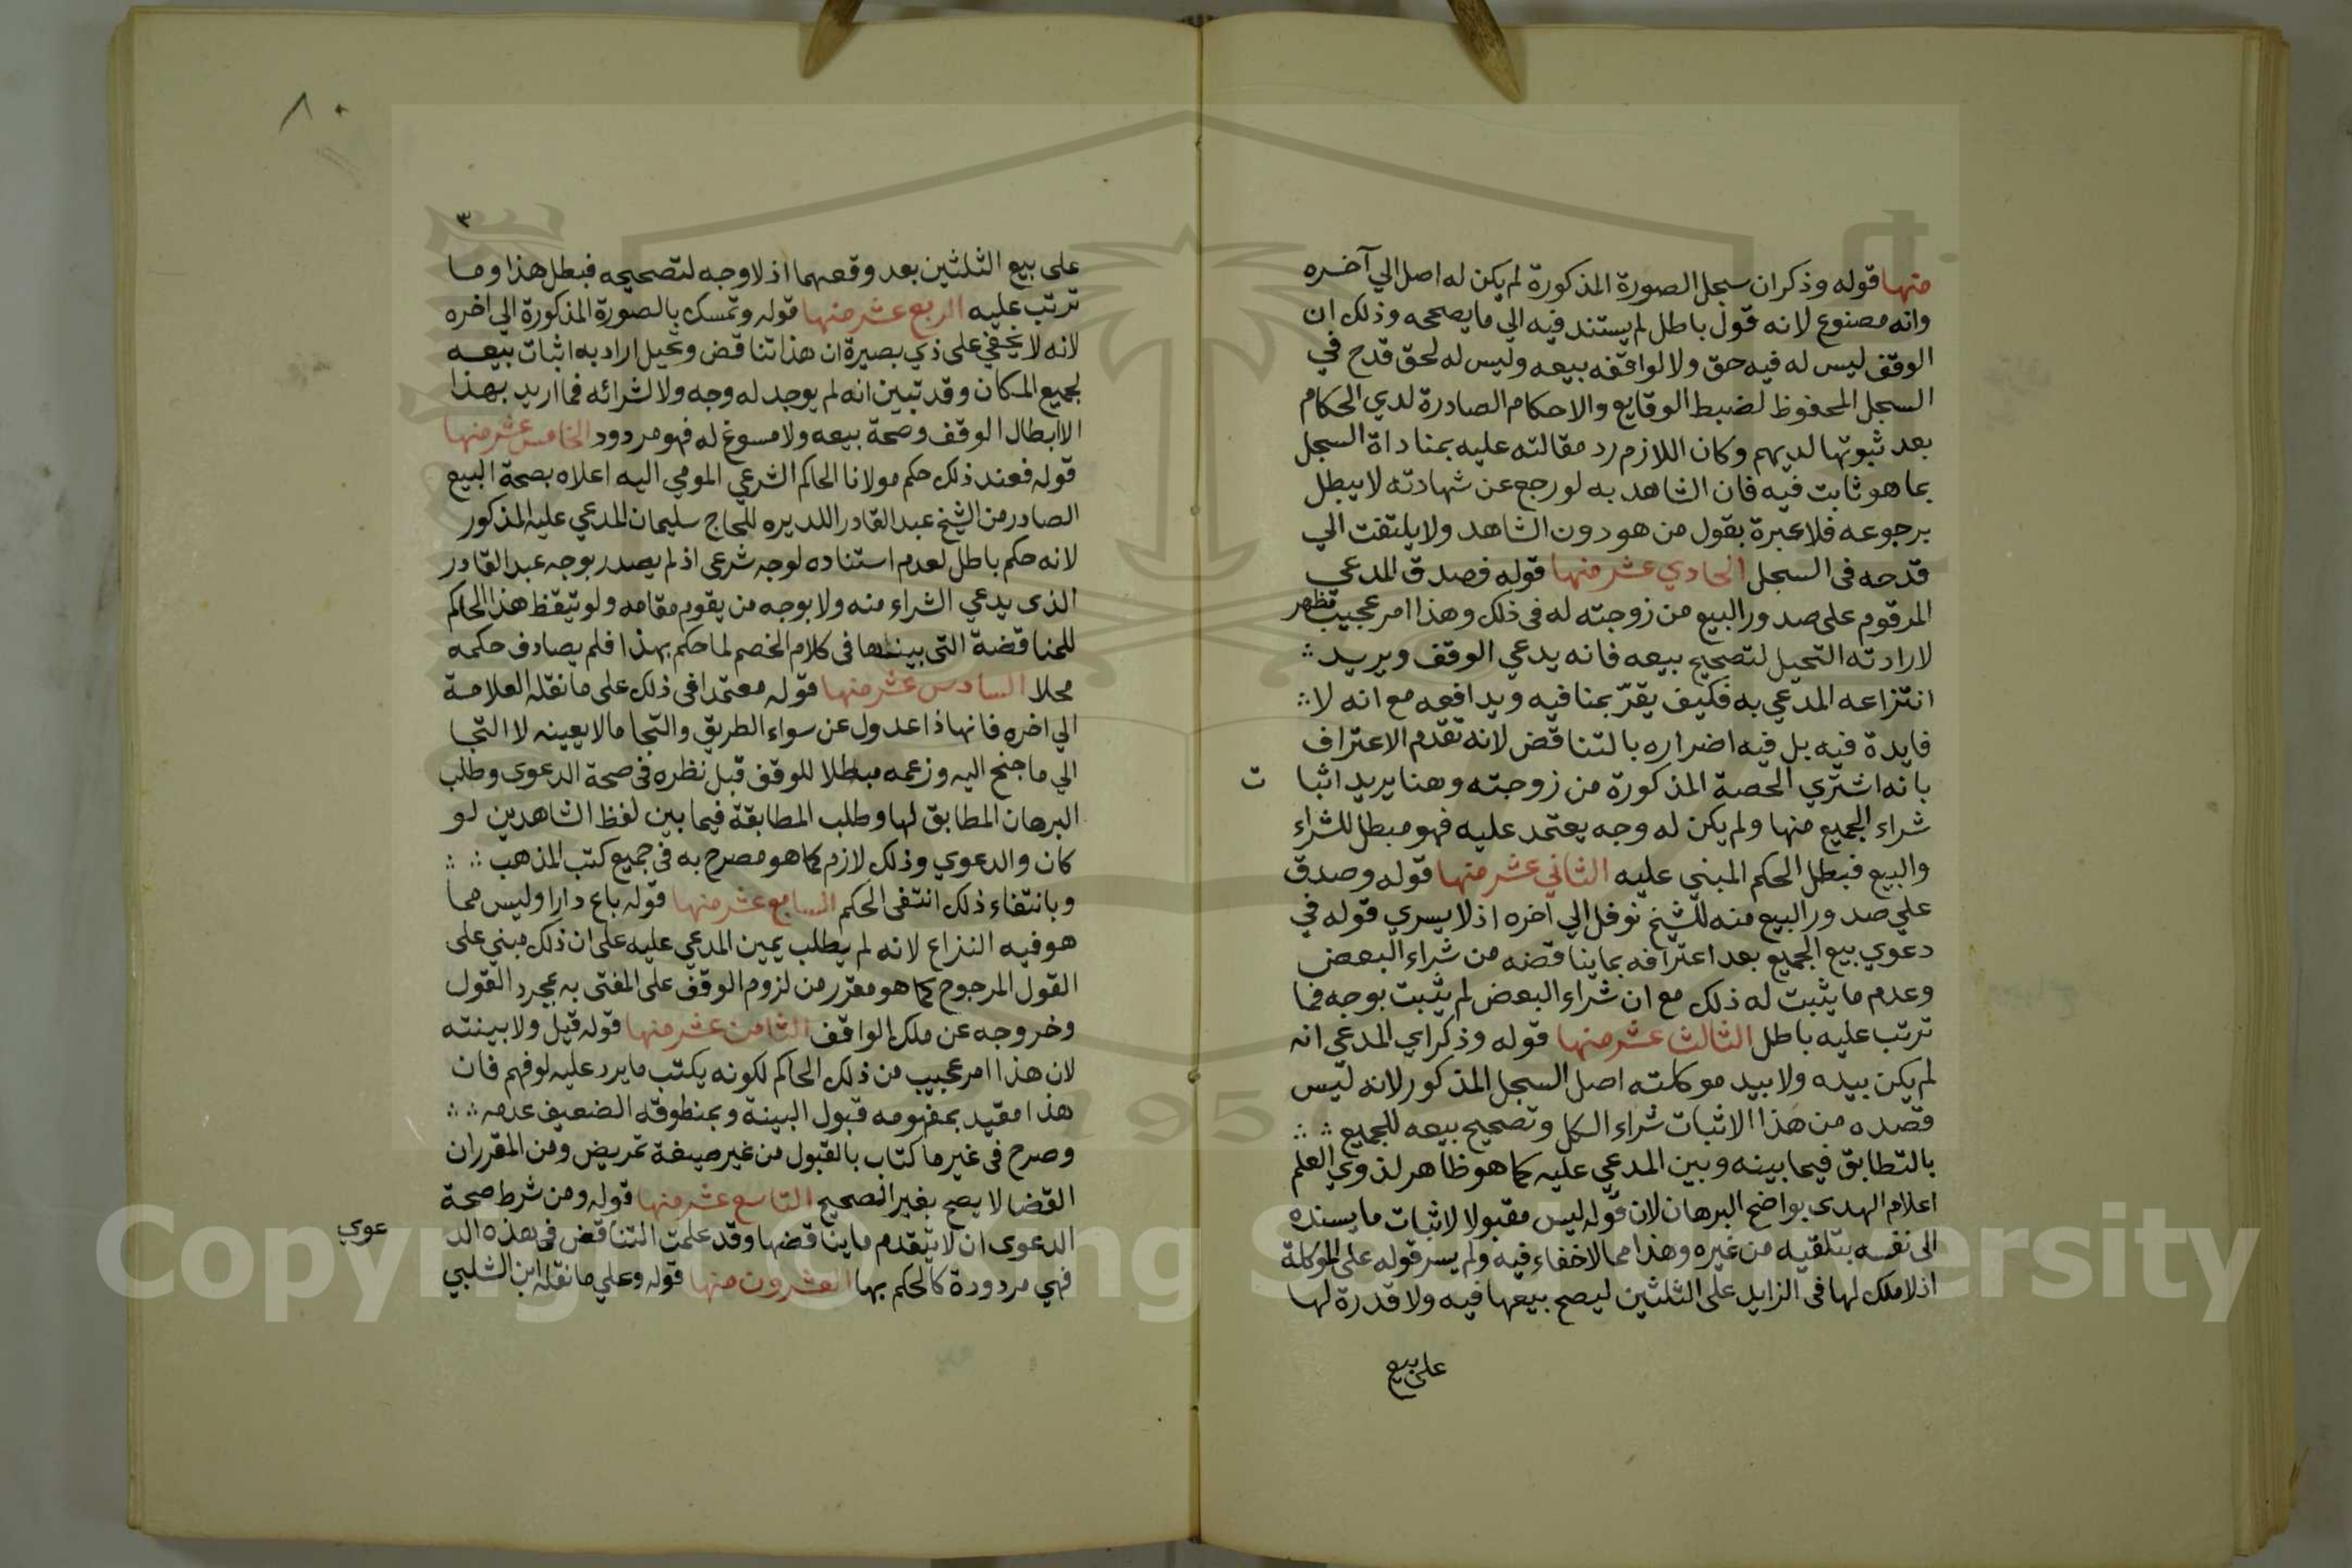 منها قوله وذكر ان سجل الصورة المذكورة لم يكن له اصل الي آخره
وانه مصنوع لانه قول باطل لم يستند فيه الي ما يصححه وذلك ان
الوقف ليس له فيه حق ولا لواقفه بيعه وليس له لحق قدح في
السجل المحفوظ لضبط الوقايع والاحكام الصادرة لدي الحكام
بعد ثبوتها لديهم وكان اللازم رد مقالته عليه بمناداة السجل
بما هو ثابت فيه فان الشاهد به لو رجع عن شهادته لا يبطل
برجوعه فلا عبرة بقول من هو دون الشاهد ولا يلتفت الي
قدحه فى السجل الحادي عشر منها قوله فصدق المدعي
المرقوم على صدور البيع من زوجته له فى ذلك وهذا امر عجيب تظهر
لارادته التحيل لتصحيح بيعه فانه يدعي الوقف ويريد
انتزاعه المدعي به فكيف يقرّ بمنافيه ويدافعه مع انه لا
فايدة فيه بل فيه اضراره بالتناقض لانه تقدم الاعتراف
بانه اشتري الحصة المذكورة من زوجته وهنا يريد اثبا ت
شراء الجميع منها ولم يكن له وجه يعتمد عليه فهو مبطل للشراء
والبيع فبطل الحكم المبني عليه الثاني عشر منها قوله وصدق
علي صدور البيع منه للشيخ نوفل الي اخره اذ لا يسري قوله في
دعوي بيع الجميع بعد اعترافه بما يناقضه من شراء البعض
وعدم ما يثبت له ذلك مع ان شراء البعض لم يثبت بوجه فما
ترتب عليه باطل الثالث عشر منها قوله وذكر اي المدعي انه
لم يكن بيده ولا بيد موكلته اصل السجل المذكور لانه ليس
قصده من هذا الاثبات شراء الكل وتصحيح بيعه للجميع
بالتطابق فيما بينه وبين المدعي عليه كما هو ظاهر لذوي العلم
اعلام الهدى بواضح البرهان لان قوله ليس مقبولا لاثبات ما يسنده
الى نفسه بتلقيه من غيره وهذا مما لا خفاء فيه ولم يسر قوله على الموكلة
اذ لا ملك لها فى الزايد على الثلثين ليصح بيعها فيه ولا قدرة لها
على بيع
٨٠
٣
على بيع الثلثين بعد وقعهما اذ لا وجه لتصحيحه فبطل هذا وما
ترتب عليه الربع عشر منها قوله وتمسك بالصورة المذكورة الي اخره
لانه لا يخفي على ذي بصيرة ان هذا تناقض وتحيل اراد به اثبات بيعه
لجميع المكان وقد تبين انه لم يوجد له وجه ولا لشرائه فما اريد بهذا
الا ابطال الوقف وصحة بيعه ولا مسوغ له فهو مردود الخامس عشر منها
قوله فعند ذلك حكم مولانا الحاكم الشرعي المومي اليه اعلاه بصحة البيع
الصادر من الشيخ عبد القادر اللديره للحاج سليمان المدعي عليه المذكور
لانه حكم باطل لعدم استناده لوجه شرعى اذ لم يصدر بوجه عبد القادر
الذى يدعي الشراء منه ولا بوجه من يقوم مقامه ولو تيقظ هذا الحاكم
للمناقضة التى بيناها فى كلام الخصم لما حكم بهذا فلم يصادف حكمه
محلا السادس عشر منها قوله معتمدا فى ذلك على ما نقله العلامة
الي اخره فانها ذا عدول عن سواء الطريق والتجا مالا يعينه لا التجا
الي ما جنح اليه وزعمه مبطلا للوقف قبل نظره فى صحة الدعوى وطلب
البرهان المطابق لها وطلب المطابقة فيما بين لفظ الشاهدين لو
كان والدعوي وذلك لازم كما هو مصرح به فى جميع كتب المذهب
وبانتفاء ذلك انتفى الحكم السابع عشر منها قوله باع دارا وليس مما
هو فيه النزاع لانه لم يطلب يمين المدعي عليه على ان ذلك مبني على
القول المرجوح كما هو مقرر من لزوم الوقف على المفتى به بمجرد القول
وخروجه عن ملك الواقف الثامن عشر منها قوله قيل ولا بينته
لان هذا امر عجيب من ذلك الحاكم لكونه يكتب ما يرد عليه لو فهم فان
هذا مقيد بمفهومه قبول البينة وبمنطوقه الضعيف عدمه
وصرح فى غير ما كتاب بالقبول من غير صيغة تمريض ومن المقرر ان
القضا لا يصح بغير الصحيح التاسع عشر منها قوله ومن شرط صحة
الدعوى ان لا يتقدم ما يناقضها وقد علمت التناقض فى هذه الد عوي
فهي مردودة كالحكم بها العشرون منها قوله وعلي ما نقله ابن الشلبي
Copyright © King Saud University
1957